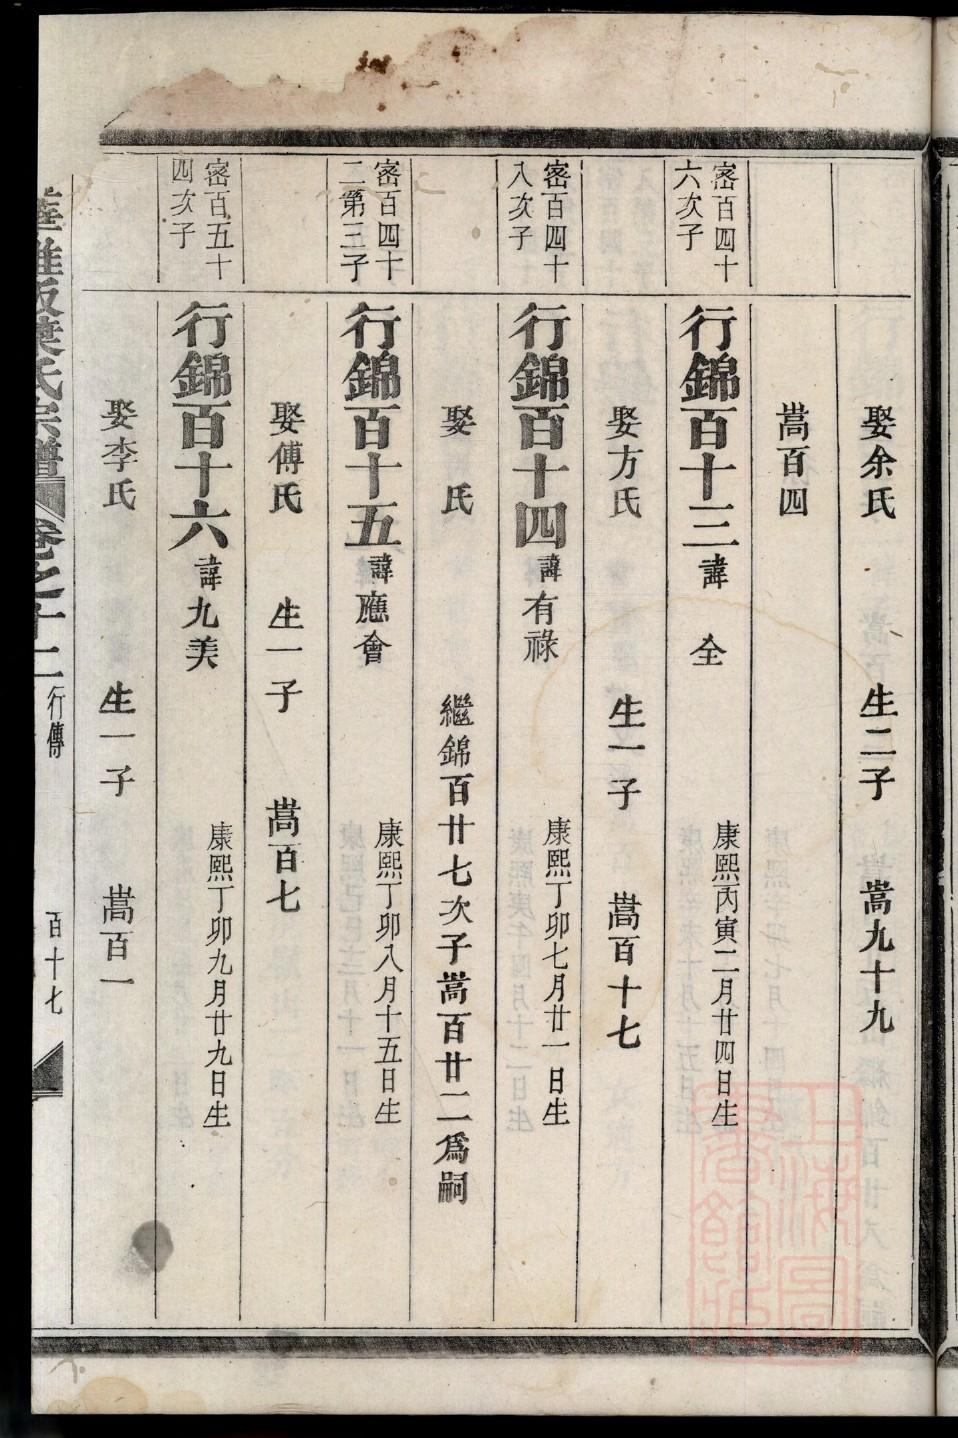 娶余氏 生二子 嵩九十九
嵩百四
密百四十六次子
行錦百十三 諱 全 康熙丙寅二月廿四日生
娶方氏 生一子 嵩百十七
密百四十八次子
行錦百十四 諱有祿 康熙丁卯七月廿一日生
娶 氏 繼錦百廿七次子嵩百廿二爲嗣
密百四十二第三子
行錦百十五 諱應會 康熙丁卯八月十五日生
娶傅氏 生一子 嵩百七
密百五十四次子
行錦百十六 諱九美 康熙丁卯九月廿九日生
娶李氏 生一子 嵩百一
葉氏宗譜 卷之十二 行傳 百十七
上海圖書館藏